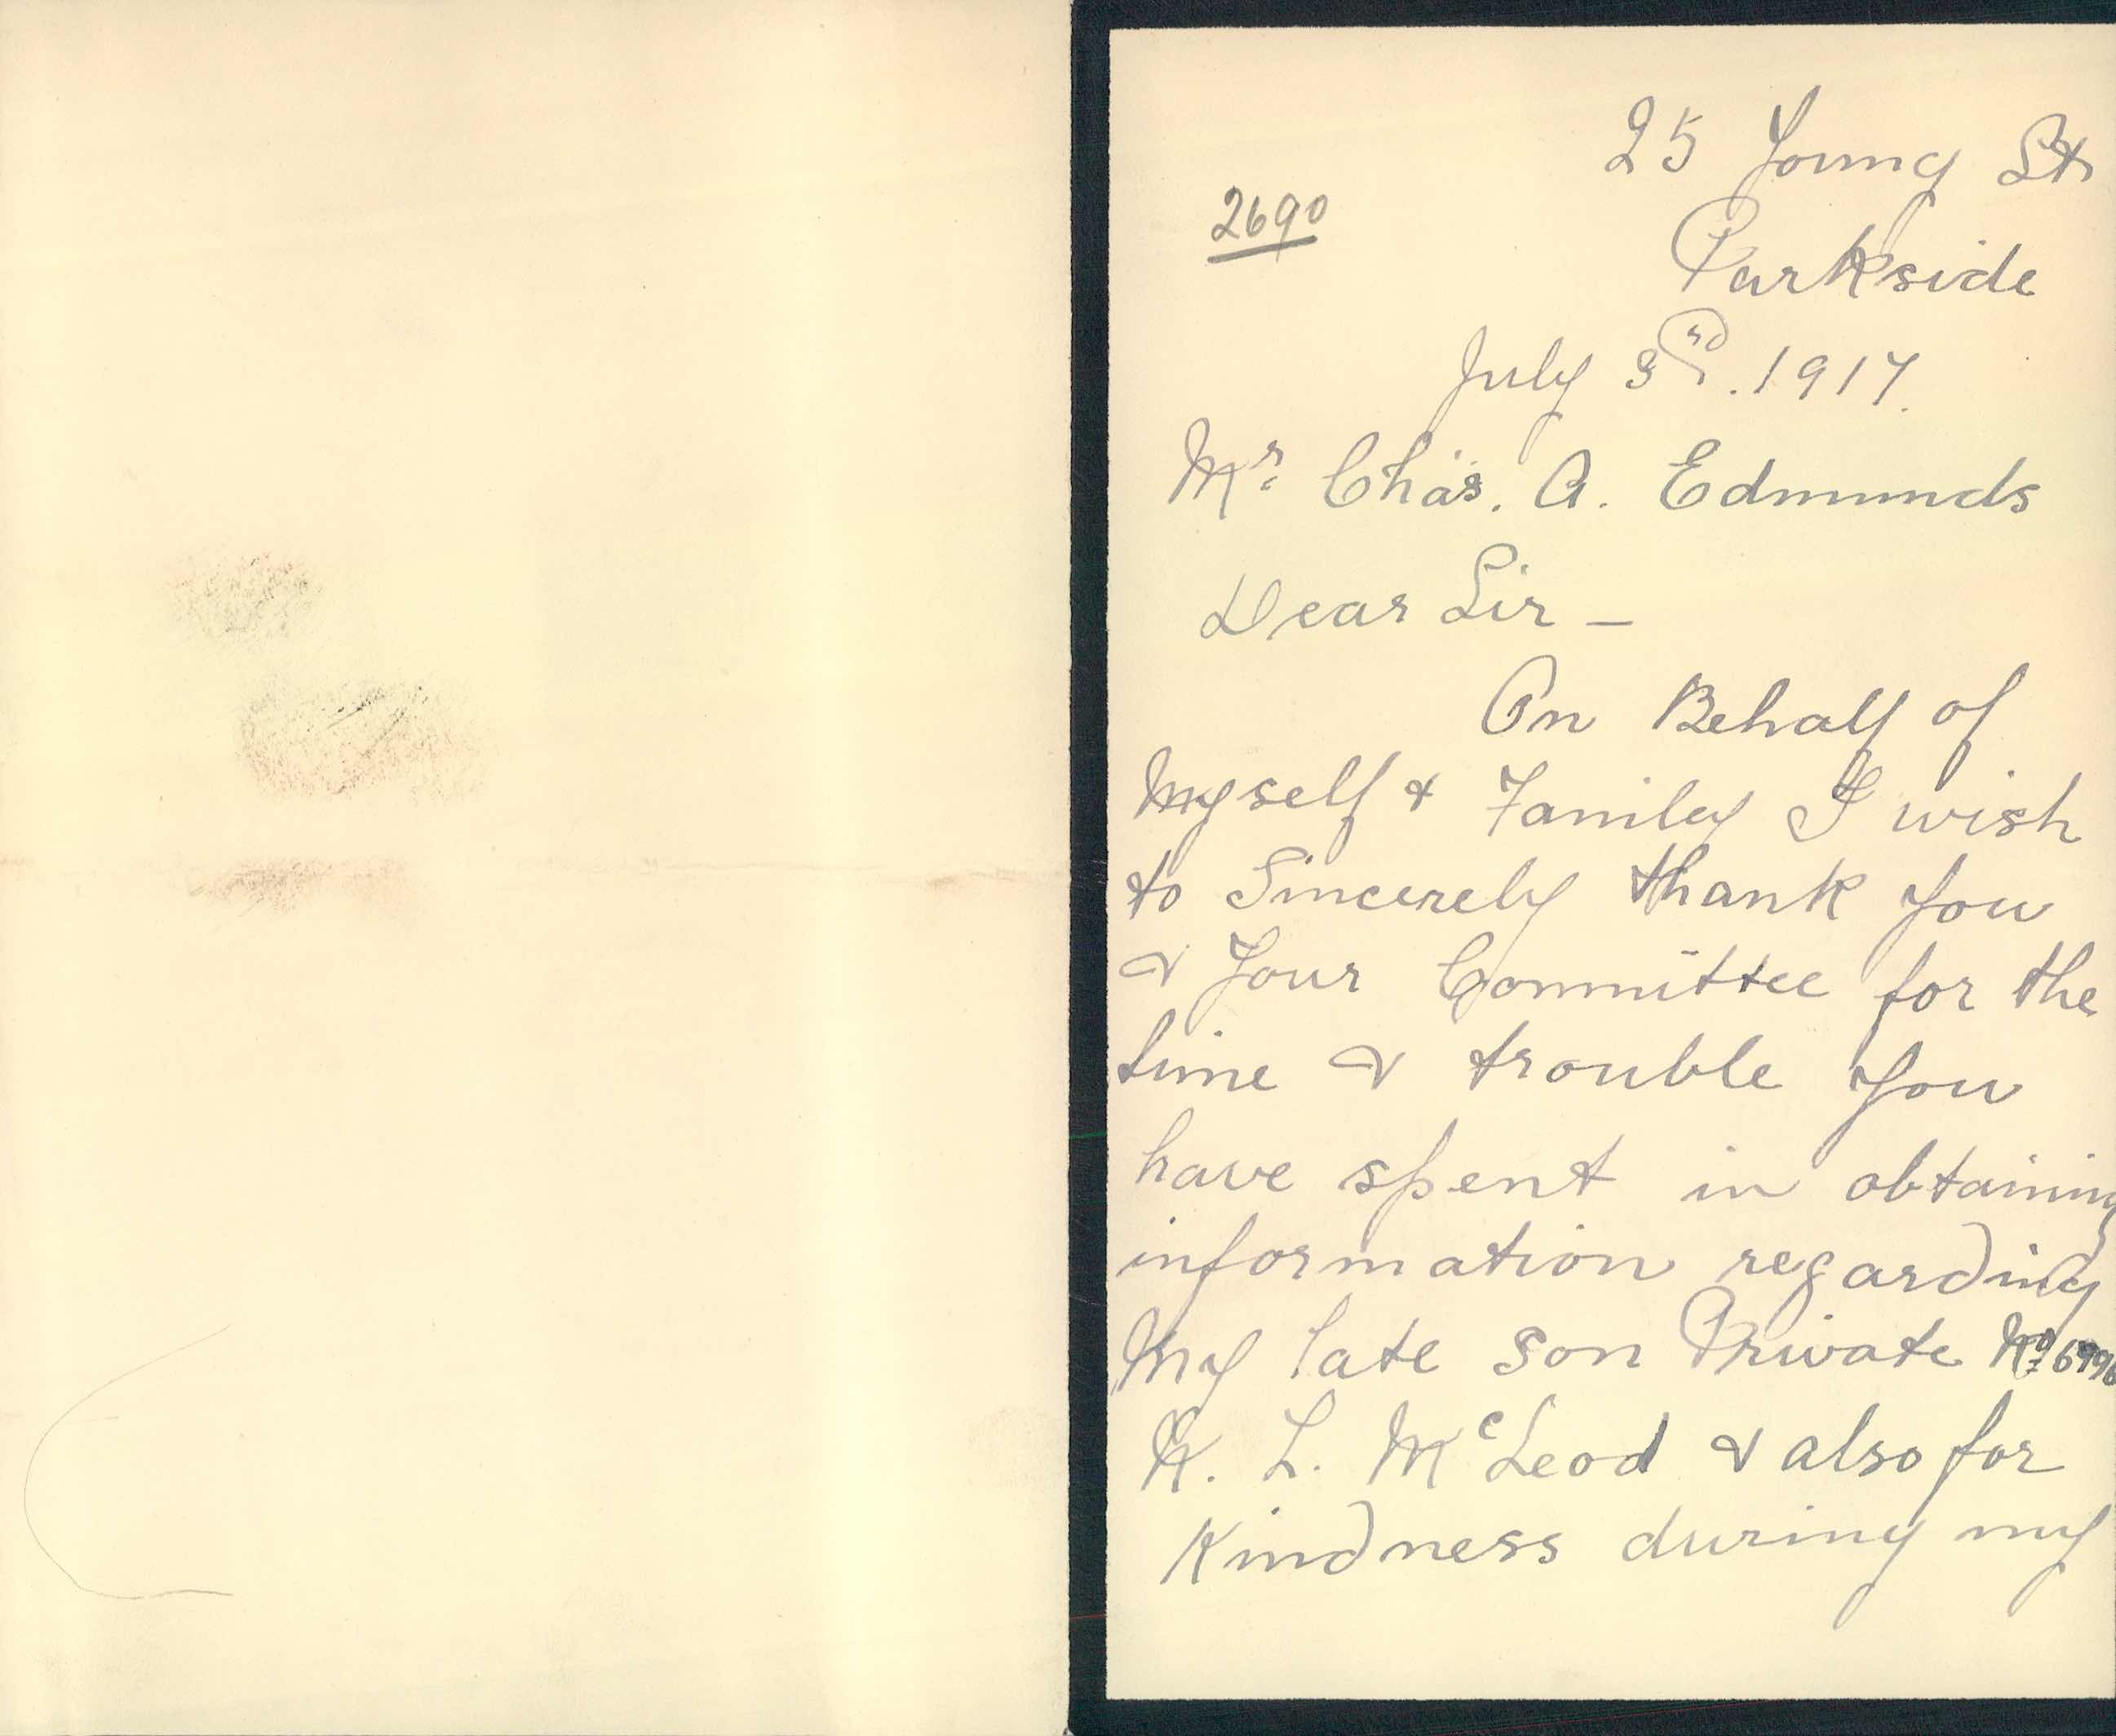 25 Young St
2690
Parkside
July 3rd. 1917.
Mr Chas. A. Edmunds
Dear Sir —
On Behalf of
Myself & Familey I wish
to Sincerely thank You
& Your Committee for the
time & trouble You
have spent in obtaining
information regarding
My late son Private No
K. L. McLeod & also for
Kindness during my